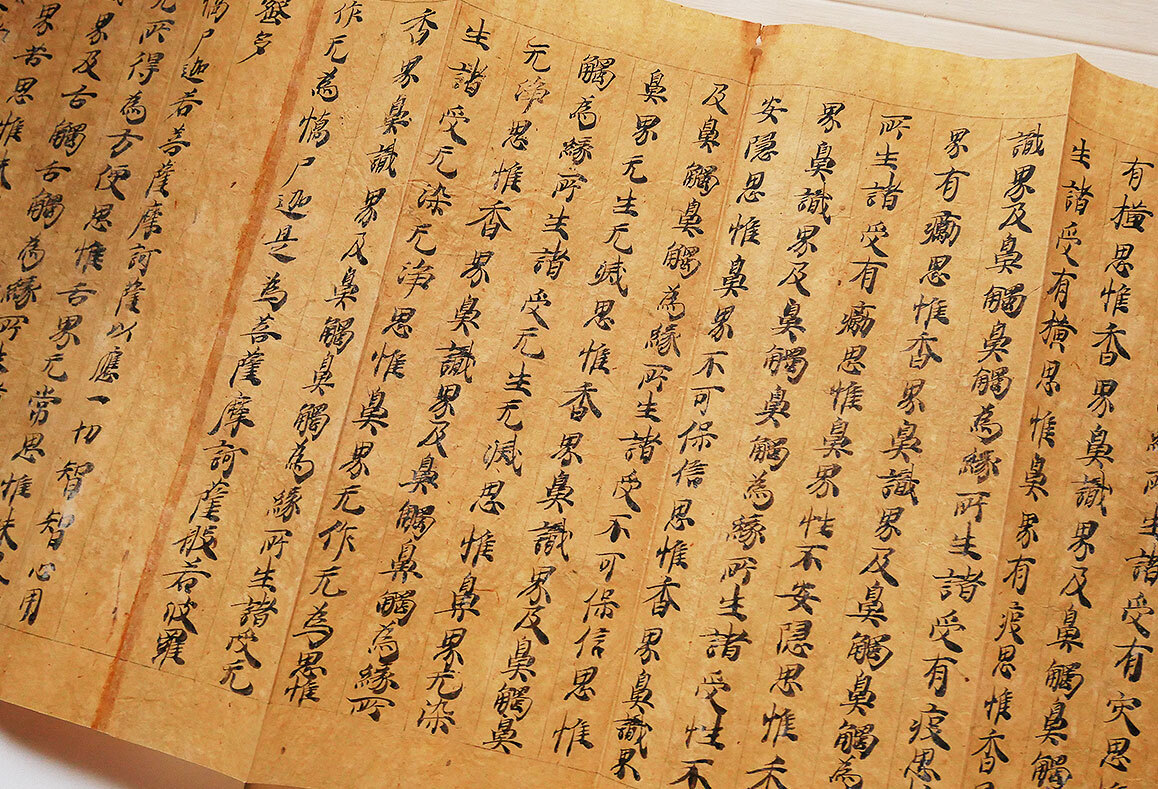 所生諸受有灾思
有横思惟香界鼻識界及鼻觸鼻觸
生諸受有横思惟鼻界有疫思惟香
識界及鼻觸鼻觸為緣所生諸受有疫思
界有癘思惟香界鼻識界及鼻觸鼻觸為
所生諸受有癘思惟鼻界性不安隱思惟香
界鼻識界及鼻觸鼻觸為緣所生諸受性不
安隱思惟鼻界不可保信思惟香界鼻識界
及鼻觸鼻觸為緣所生諸受不可保信思惟
鼻界无生无滅思惟香界鼻識界及鼻觸鼻
觸為緣所生諸受无生无滅思惟鼻界无染
无淨思惟香界鼻識界及鼻觸鼻觸為緣所
生諸受无染无淨思惟鼻界无作无為思惟
香界鼻識界及鼻觸鼻觸為緣所生諸受无
作无為憍尸迦是為菩薩摩訶薩般若波羅
蜜多
憍尸迦若菩薩摩訶薩以應一切智智心用
无所得為方便思惟舌界无常思惟味
界及舌觸舌觸為緣所生
界苦思惟味